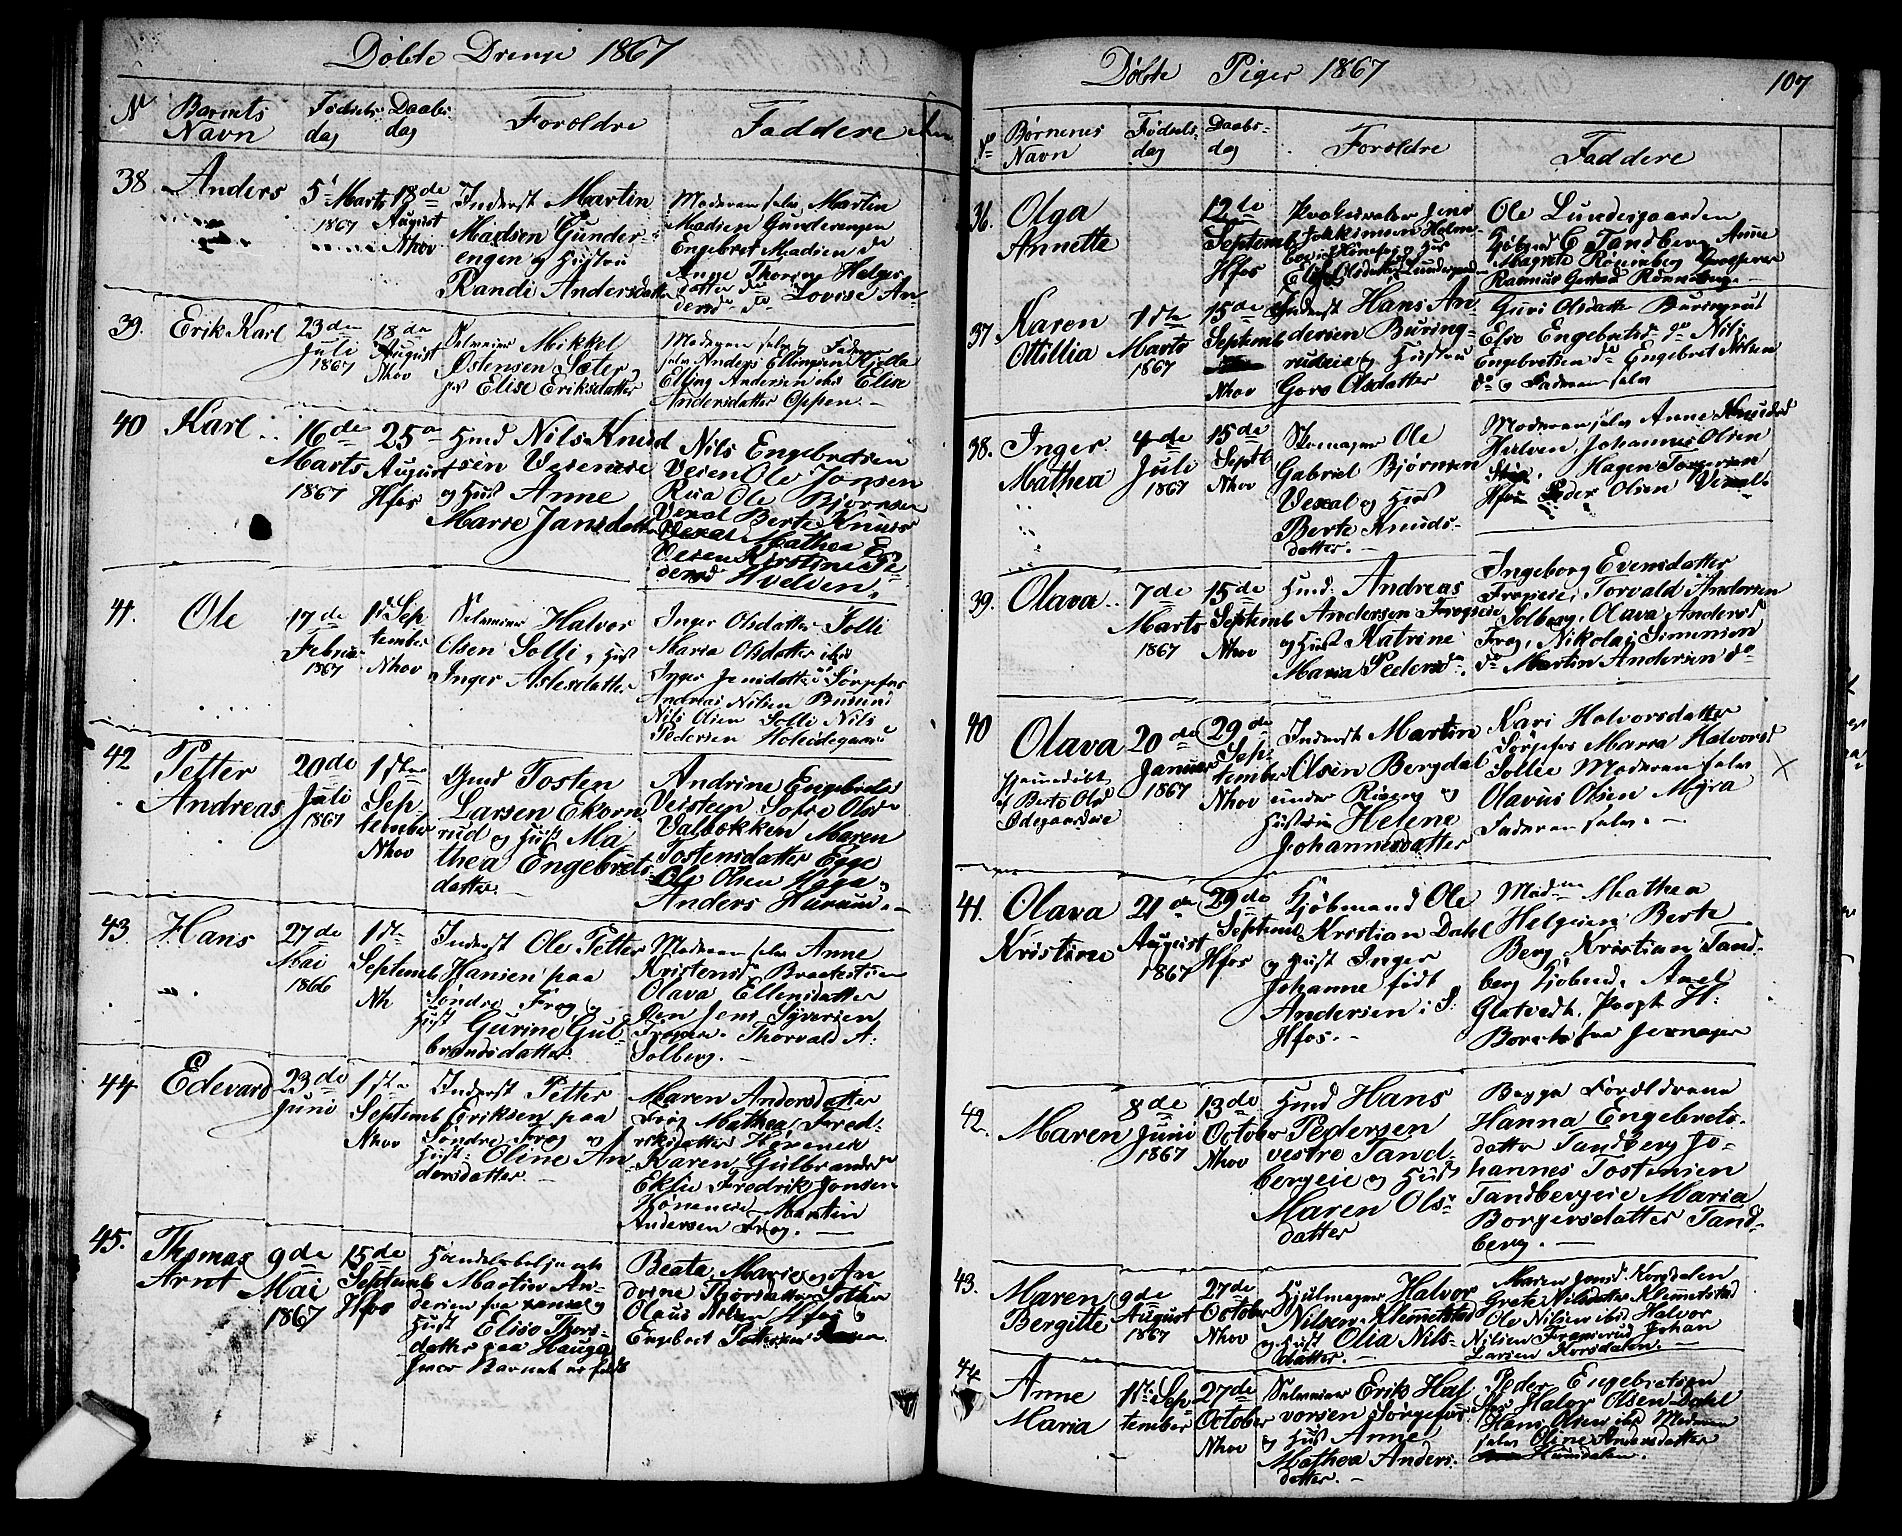 Døbte Drenge 1867
No
Barnets
Navn
Fødsels-
dag
Daabs-
dag
Foreldre
Faddere
38.
Anders
5te Marts
1867
18de
August
Nhov
Inderst Martin
Madsen Gunder-
engen og Hustru
Randi Andersdatter
Moderen selv Martin
Madsen Gunderengen
Engebret Madsen do
Anne Helges-
datter do Lovise An-
dersd. do
39.
Erik Karl
23de
Juli
1867
18de
August
Nhov
Mikkel
Østensen Sæter
Elise Eriksdatter
Moderen selv Faderen
selv Anders Ellingsen
Elling Andersen Elise
Andersdatter Oppen.
40
Karl
16de
Marts
1867
25de
August
Hfos
Hmd Nils Knud
sen Veseneie
og Hust Anne
Marie Jansdatter
Nils Engebretsen
Vesen Ole Jonsen
Ole Bjørnsen
Vexal Berte Knuds
Vexal Mathea E
Vesen Kirstine Pe-
dersd Hvelven.
41.
Ole
17de
Februar
1867
1ste Sep
tember
Nhov
Halvor
Olsen Solli, Hust
Inger Aslesdatter
Inger Olsdatter Solli
Maria Olsdatter ibid
Inger Jensdatter Sørgefos
Andreas Nilsen Busund
Nils Olsen Solli Nils
Pedersen
42
Petter
Andreas
20de
Juli
1867
1ste
Sep-
tember
Nhov
Gmd Tosten
Larsen Ekorn
rud og Hust Ma
thea Engebrets-
datter.
Andrine Engebrets
Vestern Sofie Ols-
Valbekken Maren
Tostensdatter Egge
Ole Olsen
Anders Hurum.
43.
Hans
27de
Mai
1866
1ste
Septemb
Nh
Inderst Ole Petter
Hansen paa
Søndre Frog og
Hust Gurine Gul-
brandsdatter.
Moderen selv Anne
Kristensd
Olava Ellensdatter
Jens Syversen
Thorvald A:
Solberg.
44.
Edevard
23de
Juni
1ste
Septemb
Nhov
Inderst Petter
Eriksen paa
Søndre Frog og
Hust: Oline An
dersdatter.
Maren Andersdatter
Frog Mathea Fred-
riksdatter Høneneie
Karen Gulbrandsd
Eklie Fredrik Jonsen
Høneneie Martin
Andersen Frog.
45.
Thomas
Arnt
9de
Mai
1867
15de
Septemb
Hfos
Handelsbetjent
Martin An-
dersen fra
Hust Eliso Thors-
datter paa Hauger
hvor Barnet er født
Beata Marie og An
drine Thorsdatter
Olaus Hfos
Engebret
Døbte Piger 1867
107
No
Børnenes
Navn
Fødsels-
dag
Daabs-
dag
Foreldre
Faddere
36.
Olga
Annette
12te
Septemb
Hfos
Jens
Ole Lundesgaarden
E Tandberg Anne
Magrete Rønneberg
Rasmus Rønneberg
37
Karen
Ottillia
1ste
Marts
1867
15de
Septemb
Nhov
Inderst Hans An-
dersen Buring-
rudeie og Hustru
Goro Olsdatter
Guri Olsdatter Buringrud
Else Engebretsd do Nils
Engebretsen do Engebret Nilsen
do og Faderen selv
38.
Inger
Mathea
4de
Juli
1867
15de
Septb
Nhov
Skomager Ole
Gabriel Bjørnsen
Vexal og Hust
Berte Knuds-
datter.
Moderen selv Anne Knudsd
Hvelven, Johannes Olsen
Hagen Torgersen
Hfos Peder Olsen Vexal
39.
Olava
7de
Marts
1867
15de
Septemb
Nhov
Hmd. Andreas
Andersen Frogseie
og Hust Katrine
Maria Pedersd.
Ingeborg Evensdatter
Frogseie, Torvald Andersen
Solberg, Olava Andersd
Frog, Nikolai Simensen
do Martin Andersen do
40
Olava
hjemmedøbt
af Berte Olsd
Ødegaardseie
20de
Januar
1867
29de
Sep-
tember
Nhov
Inderst Martin
Olsen Bergdal
under Riseng og
Hustru Helene
Johannesdatter
Kari Halvorsdatter
Sørgefos Maria Halvorsd
Sollie Moderen selv
Olavus Olsen Myra
Faderen selv.
X
41.
Olava
Kristine
21de
August
1867
29de
Septemb
Hfos
Kjøbmand Ole
Kristian Dahl
og Hust Inger
Johanne født
Andersen i S:
Hfos.
Madme Mathea
Helgesen Berte
Berg, Kristian Tand-
berg Kjøbmd, Axel
Glatvedt, H:
fra Jevnager
42.
Maren
8de
Juni
1867
13de
October
Nhov
Hmd Hans
Pedersen
vestre Tand-
bergeie og Hust
Maren Ols-
datter
Begge Foreldrene
Hanna Engebrets-
datter Tandberg Jo-
hannes Tostensen
Tandbergeie Maria
Borgersdatter Tand-
berg.
43.
Maren
Bergitte
9de
August
1867
27de
October
Nhov
Hjulmager Halvor
Nilsen Klemmetstad
og Hust Olia Nils-
datter.
Maren Jensd. Korsdalen
Grete Nilsdatter Klemmetstad
Ole Nilsen ibid Halvor
Nilsen Johan
Larsen Korsdalen.
44
Anne
Maria
1ste Sep
tember
27de
October
Nhov
Erik Hal
vorsen Sørgefos
og Hust Anne
Mathea Anders-
datter.
Peder Engebretsen
Halvor Olsen Dahl
Hans Olsen ibid Moderen
selv Oline Andersdatter